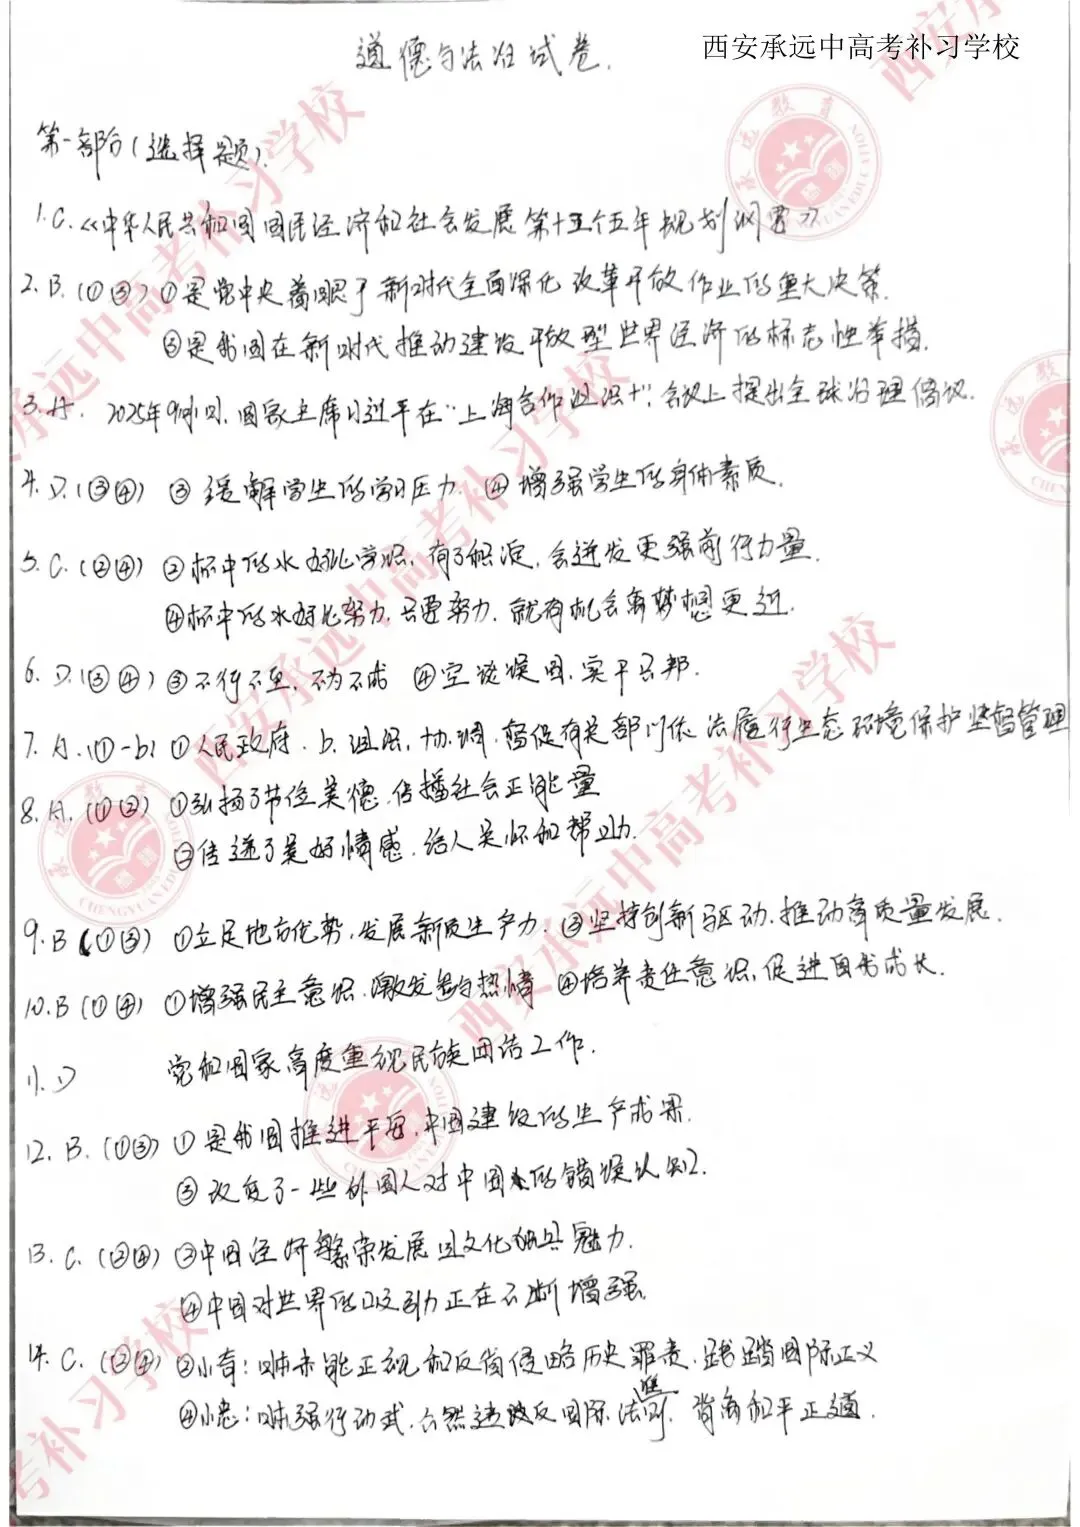 西安承远中高考补习学校
道德与法治试卷.
第一部分(选择题).
1.C.《中华人民共和国国民经济和社会发展第十五个五年规划纲要》
2.B.(①③)①是党中央着眼于新时代全面深化改革开放作出的重大决策.
③是我国在新时代推动建设开放型世界经济的标志性举措.
3.A. 2025年9月1日,国家主席习近平在"上海合作组织+"会议上提出全球治理倡议.
4.D.(③④) ③缓解学生的学习压力. ④增强学生的身体素质.
5.C.(②④) ②杯中的水好比学识,有了积淀,会迸发更强前行力量.
④杯中的水好比努力,只要努力,就有机会离梦想更近.
6.D.(③④)③不行不至,不为不成 ④空谈误国,实干兴邦.
7.A.(①-b)①人民政府.b.组织、协调、督促有关部门依法履行生态环境保护监督管理
8.A.(①②)①弘扬了节位美德,传播社会正能量
②传递了美好情感,给人关怀和帮助.
9.B(①③) ①立足地方优势,发展新质生产力. ③坚持创新驱动,推动高质量发展.
10.B(①④) ①增强民主意识,激发参与热情 ④培养责任意识,促进自我成长.
11.D 党和国家高度重视民族团结工作.
12.B.(①③)①是我国推进平安中国建设的生产成果.
③改变了一些外国人对中国的错误认知.
13.C.(②④)②中国经济繁荣发展 文化独具魅力.
④中国对世界的吸引力正在不断增强.
14.C.(②④)②小奇:…未能正视和反省侵略历史罪责,践踏国际正义
④小志:…强行动武,公然违反国际法准则,背离和平正道.
西安承远中高考补习学校
承远教育
CHENGYUAN EDUCATION